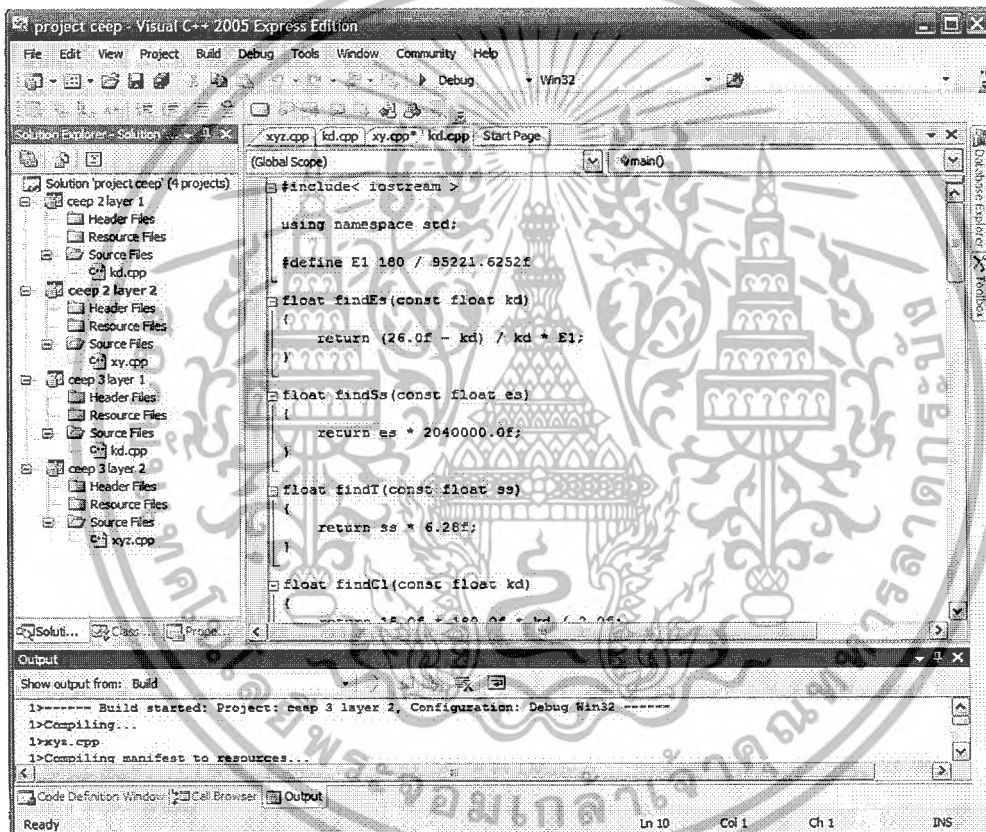 project ceep - Visual C++ 2005 Express Edition
File Edit View Project Build Debug Tools Window Community Help
Debug Win32
Solution Explorer - Solution
xyz.cpp kd.cpp xy.cpp* kd.cpp Start Page
(Global Scope) main()
Solution 'project ceep' (4 projects)
ceep 2 layer 1
Header Files
Resource Files
Source Files
kd.cpp
ceep 2 layer 2
Header Files
Resource Files
Source Files
xy.cpp
ceep 3 layer 1
Header Files
Resource Files
Source Files
kd.cpp
ceep 3 layer 2
Header Files
Resource Files
Source Files
xyz.cpp
Soluti... Class ... Prope...
#include< iostream >
using namespace std;
#define E1 180 / 95221.6252f
float findEs(const float kd)
{
return (26.0f - kd) / kd * E1;
}
float findSs(const float es)
{
return es * 2040000.0f;
}
float findT(const float ss)
{
return ss * 6.28f;
}
float findC1(const float kd)
{
Database Explorer
Toolbox
Output
Show output from: Build
1>------ Build started: Project: ceep 3 layer 2, Configuration: Debug Win32 ------
1>Compiling...
1>xyz.cpp
1>Compiling manifest to resources...
Code Definition Window Call Browser Output
Ready Ln 10 Col 1 Ch 1 INS